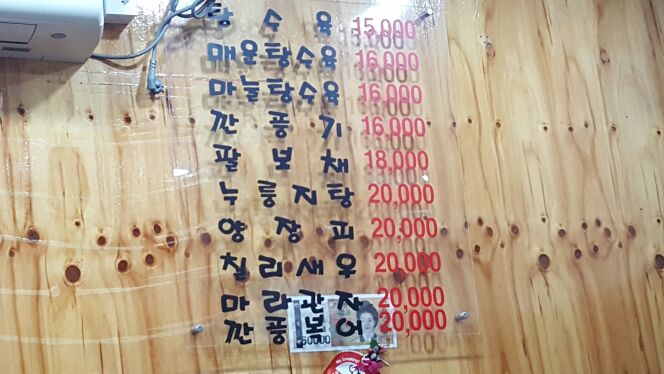 탕수육 15,000
매운탕수육 16,000
마늘탕수육 16,000
깐풍기 16,000
팔보채 18,000
누룽지탕 20,000
양장피 20,000
칠리새우 20,000
마라관자 20,000
깐풍복어 20,000
50000
No Smoking